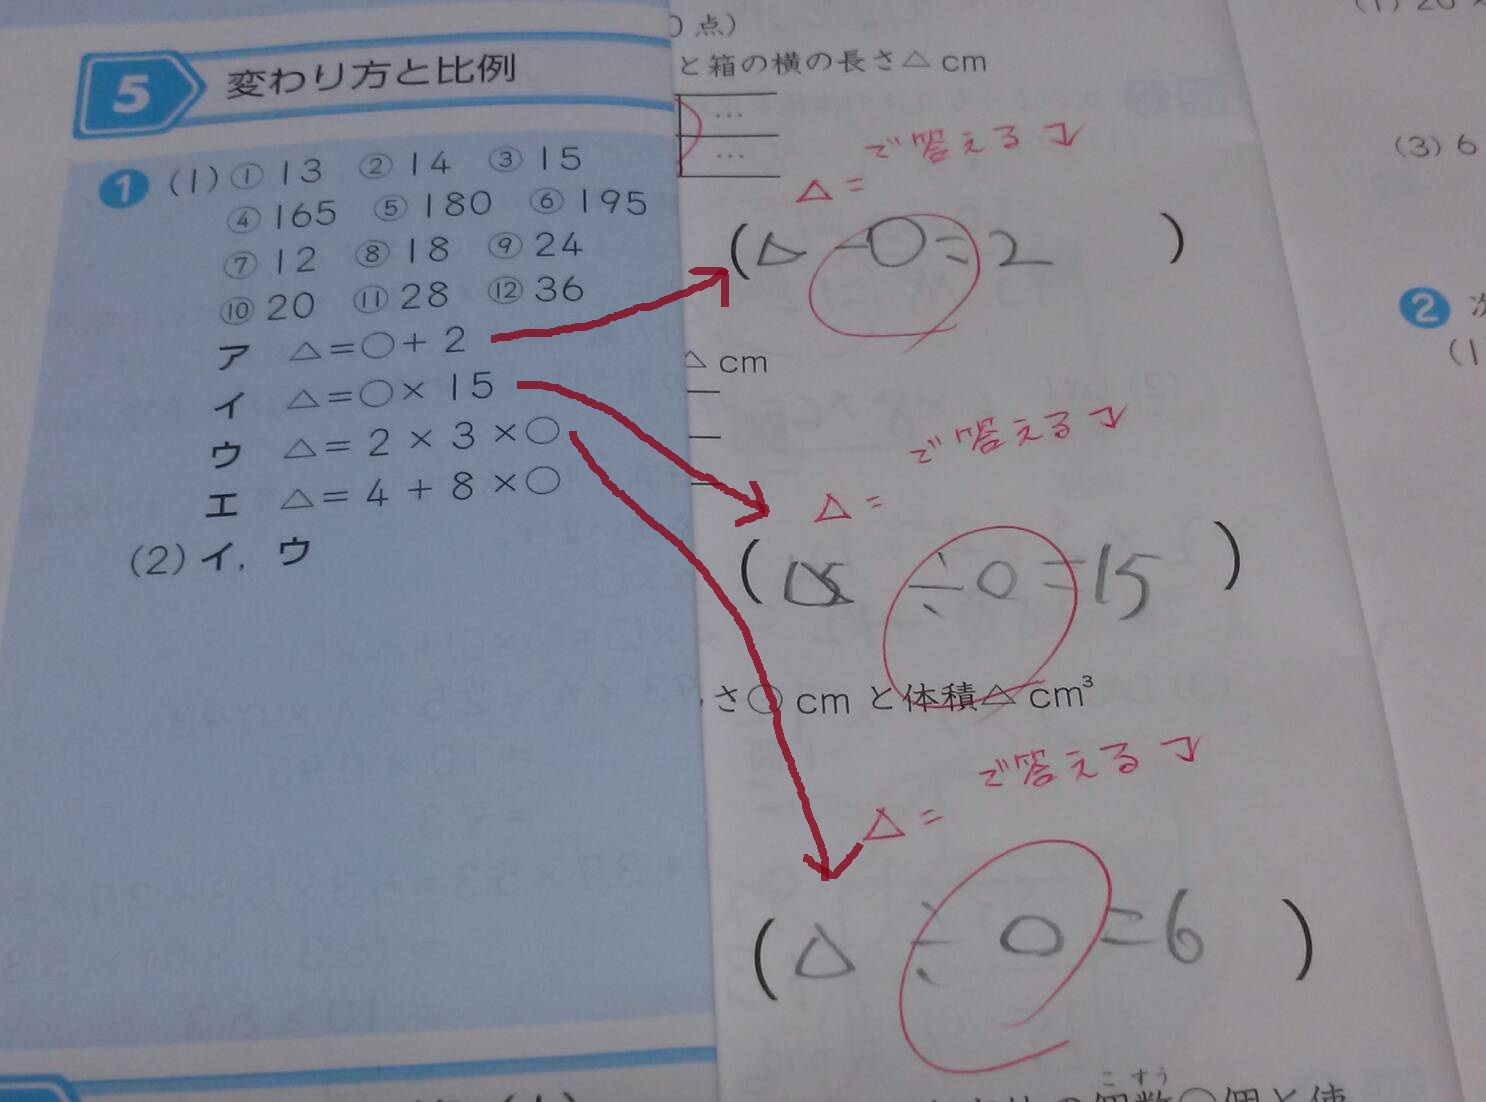 5 変わり方と比例
1 (1) ① 13 ② 14 ③ 15
④ 165 ⑤ 180 ⑥ 195
⑦ 12 ⑧ 18 ⑨ 24
⑩ 20 ⑪ 28 ⑫ 36
ア △=○+2
イ △=○×15
ウ △=2×3×○
エ △=4+8×○
(2) イ, ウ
点)
と箱の横の長さ△cm
…
…
で答える
△=
(△-○=2)
△cm
で答える
△=
÷○=15)
さ○cmと体積△cm³
で答える
△=
(△÷○=6)
こすう
個数○個と使
(3) 6
2 次
(1